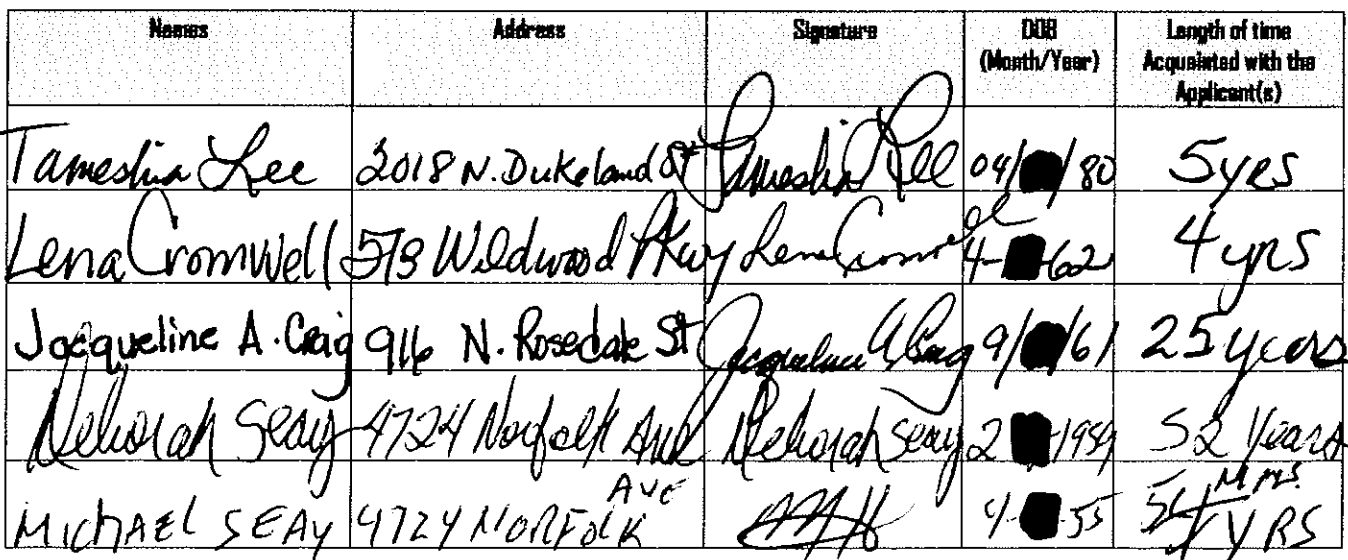 Names Address Signature DOB (Month/Year) Length of time Acquainted with the Applicant(s)
Tameshia Lee 2018 N. Dukeland St Tameshia Lee 04/ /80 5yrs
Lena Cromwell 573 Wildwood Pkwy Lena Cromwell 4- -62 4 yrs
Jacqueline A. Craig 916 N. Rosedale St Jacqueline A Craig 9/ /61 25 years
Deborah Seay 4724 Norfolk Ave Deborah Seay 2 -1954 52 years
MICHAEL SEAY 4724 NORFOLK AVE 4- -55 YRS